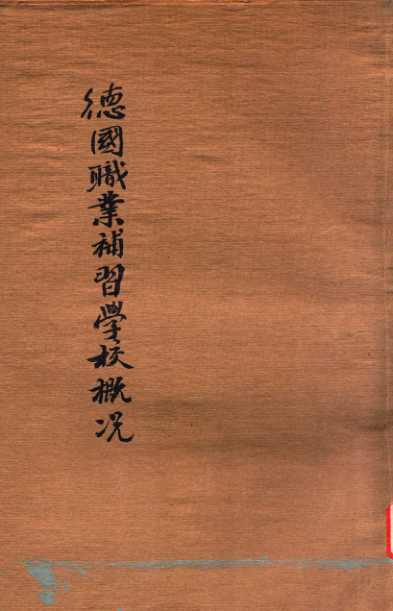 德國職業補習學校概况